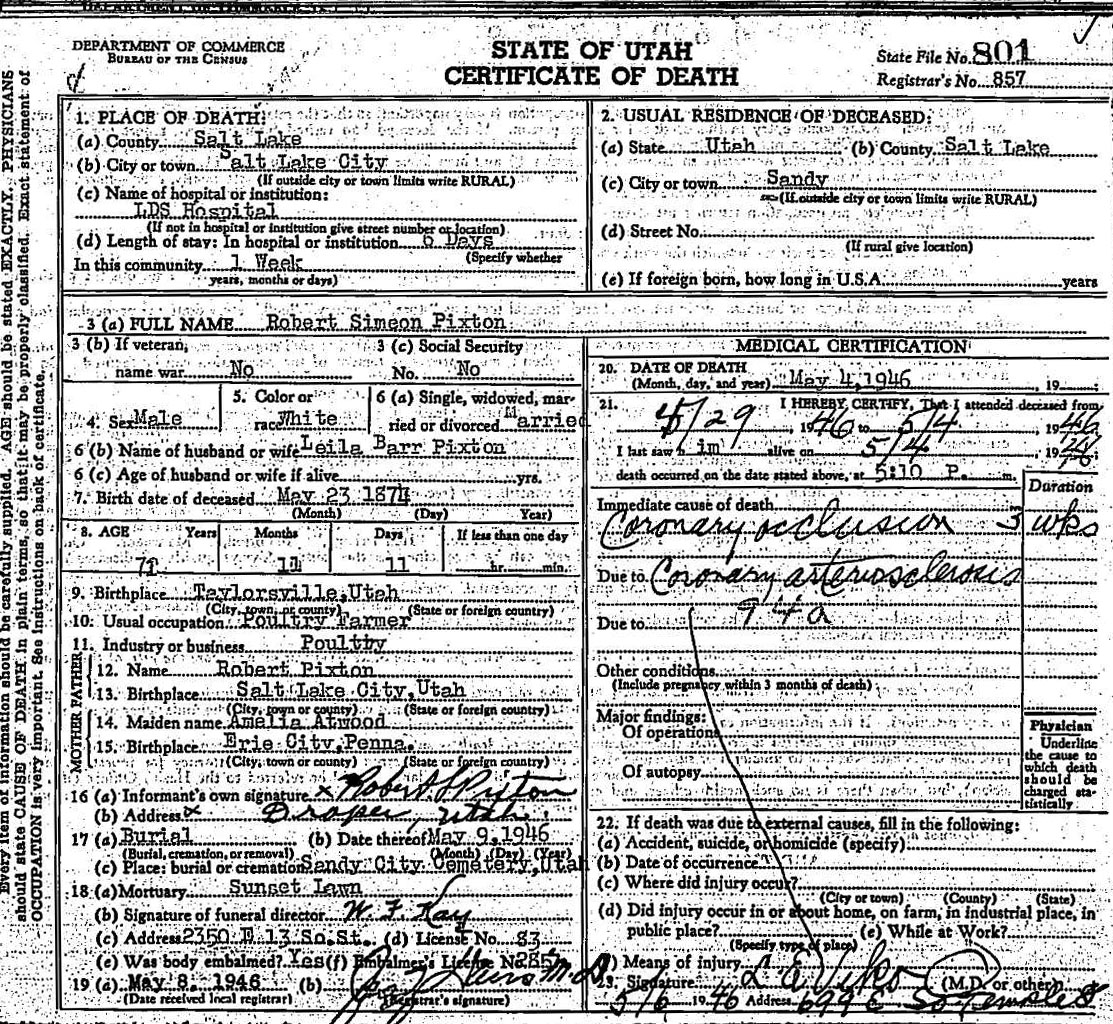 DEPARTMENT OF COMMERCE
BUREAU OF THE CENSUS
STATE OF UTAH
CERTIFICATE OF DEATH
State File No. 801
Registrar's No. 857
Every item of information should be carefully supplied. AGE should be stated EXACTLY. PHYSICIANS
should state CAUSE OF DEATH in plain terms, so that it may be properly classified. Exact statement of
OCCUPATION is very important. See instructions on back of certificate.
1. PLACE OF DEATH:
(a) County Salt Lake
(b) City or town Salt Lake City
(If outside city or town limits write RURAL)
(c) Name of hospital or institution:
LDS Hospital
(If not in hospital or institution give street number or location)
(d) Length of stay: In hospital or institution 6 Days
(Specify whether
In this community 1 Week
years, months or days)
2. USUAL RESIDENCE OF DECEASED:
(a) State Utah (b) County Salt Lake
(c) City or town Sandy
(If outside city or town limits write RURAL)
(d) Street No.
(If rural give location)
(e) If foreign born, how long in U.S.A. years
3 (a) FULL NAME Robert Simeon Pixton
3 (b) If veteran, 3 (c) Social Security
name war No No. No
4. Sex Male 5. Color or race White 6 (a) Single, widowed, married or divorced Married
6 (b) Name of husband or wife Leila Barr Pixton
6 (c) Age of husband or wife if alive yrs.
7. Birth date of deceased May 23 1874
(Month) (Day) Year)
8. AGE Years Months Days If less than one day
71 11 11 hr. min.
9. Birthplace Taylorsville, Utah
(City, town, or county) (State or foreign country)
10. Usual occupation Poultry Farmer
11. Industry or business Poultry
FATHER
12. Name Robert Pixton
13. Birthplace Salt Lake City, Utah
(City, town or county) (State or foreign country)
MOTHER
14. Maiden name Amelia Atwood
15. Birthplace Erie City, Penna.
(City, town or county) (State or foreign country)
16 (a) Informant's own signature x Robert S Pixton
(b) Address x Draper, Utah
17 (a) Burial (b) Date thereof May 9, 1946
(Burial, cremation, or removal) (Month) (Day) (Year)
(c) Place: burial or cremation Sandy City Cemetery, Utah
18 (a) Mortuary Sunset Lawn
(b) Signature of funeral director W. F. Kay
(c) Address 2350 E 13 So. St. (d) License No. 83
(e) Was body embalmed? Yes (f) Embalmer's License No. 285
19 (a) May 8, 1946 (b) M.D.
(Date received local registrar) (Registrar's signature)
MEDICAL CERTIFICATION
20. DATE OF DEATH
(Month, day, and year) May 4, 1946, 19
21. I HEREBY CERTIFY, That I attended deceased from
4/29, 1946 to 5/4, 1946
I last saw him alive on 5/4, 1946
death occurred on the date stated above, at 5:10 P. m.
Duration
Immediate cause of death
Coronary occlusion 3 wks
Due to Coronary arteriosclerosis
94a
Due to
Other conditions
(Include pregnancy within 3 months of death)
Major findings:
Of operation
Of autopsy
Physician
Underline
the cause to
which death
should be
charged sta-
tistically
22. If death was due to external causes, fill in the following:
(a) Accident, suicide, or homicide (specify)
(b) Date of occurrence
(c) Where did injury occur?
(City or town) (County) (State)
(d) Did injury occur in or about home, on farm, in industrial place, in
public place? (e) While at Work?
(Specify type of place)
) Means of injury
23. Signature L E Viko (M.D. or other)
5/6 1946 Address 699 E So Temple St